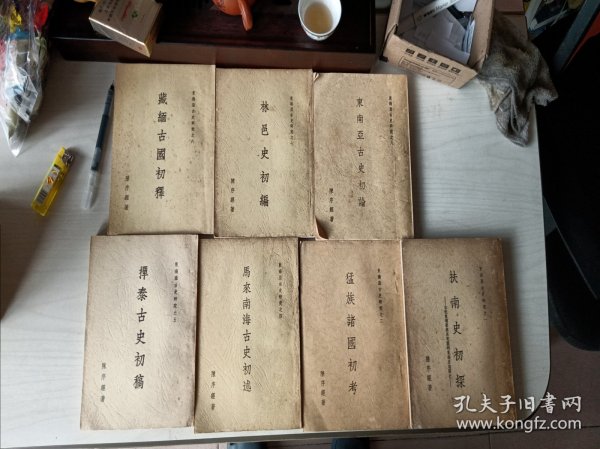 東南亞古史研究之八
藏緬古國初釋
陳序經著
東南亞古史研究之七
林邑史初編
陳序經著
東南亞古史研究之一
東南亞古史初論
陳序經著
東南亞古史研究之五
撣泰古史初稿
陳序經著
東南亞古史研究之四
馬來南海古史初述
陳序經著
東南亞古史研究之三
猛族諸國初考
陳序經著
扶南史初探
陳序經著
孔夫子旧书网
www.kongfz.com